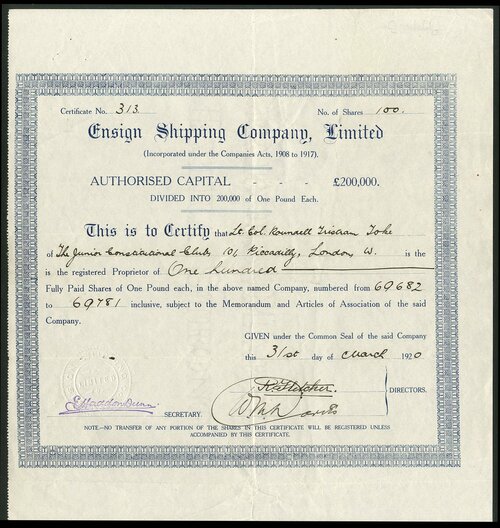 Certificate No. 313 No. of Shares 100.
Ensign Shipping Company, Limited
(Incorporated under the Companies Acts, 1908 to 1917).
AUTHORISED CAPITAL - - - £200,000.
DIVIDED INTO 200,000 of One Pound Each.
This is to Certify that Lt. Col. Roundell Tristram Toke
of The Junior Constitutional Club, 101 Piccadilly, London, W. is the
is the registered Proprietor of One hundred
Fully Paid Shares of One Pound each, in the above named Company, numbered from 69682
to 69781 inclusive, subject to the Memorandum and Articles of Association of the said
Company.
GIVEN under the Common Seal of the said Company
this 31st day of March 1920
DIRECTORS.
SECRETARY.
NOTE—NO TRANSFER OF ANY PORTION OF THE SHARES IN THIS CERTIFICATE WILL BE REGISTERED UNLESS
ACCOMPANIED BY THIS CERTIFICATE.